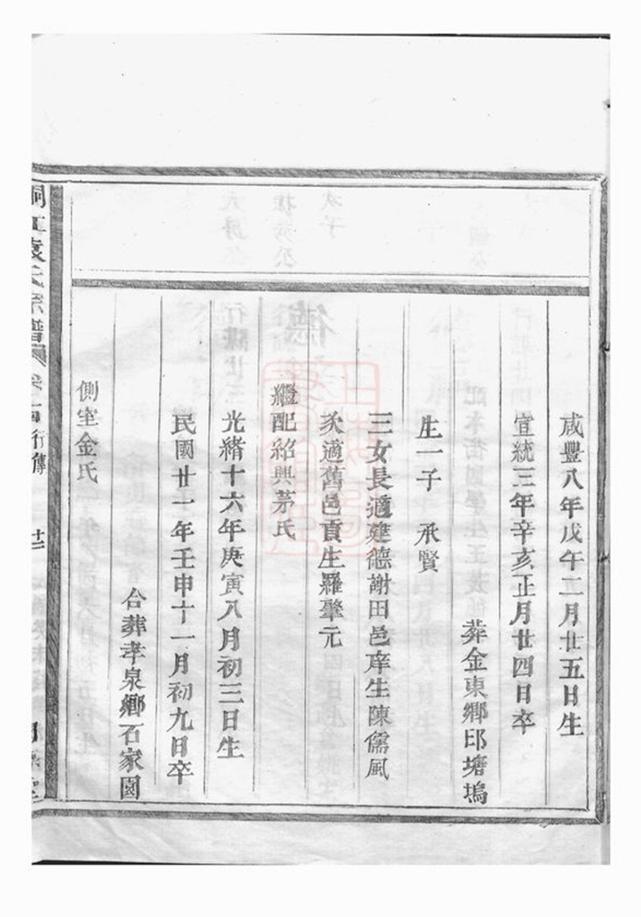 咸豐八年戊午二月廿五日生
宣統三年辛亥正月廿四日卒
葬金東鄉邱塘塢
生一子 承賢
三女長適建德謝田邑庠生陳儒風
次適舊邑貢生羅肇元
繼配紹興茅氏
光緒十六年庚寅八月初三日生
民國廿一年壬申十一月初九日卒
合葬孝泉鄉石家園
側室金氏
桐江袁氏宗譜 卷 行傳 十二